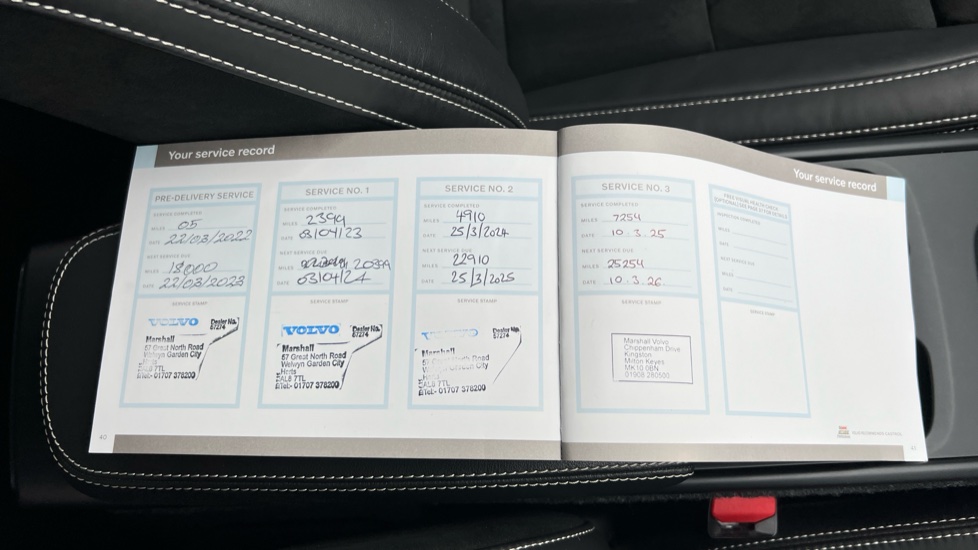 Your service record
PRE-DELIVERY SERVICE
SERVICE COMPLETED
MILES 05
DATE 22/03/2022
NEXT SERVICE DUE
MILES 18000
DATE 22/03/2023
SERVICE STAMP
VOLVO
Dealer No.
67274
Marshall
57 Great North Road
Welwyn Garden City
Herts
AL8 7TL
Tel:- 01707 378200
SERVICE NO. 1
SERVICE COMPLETED
MILES 2399
DATE 03/04/23
NEXT SERVICE DUE
MILES 20399
DATE 03/04/24
SERVICE STAMP
VOLVO
Dealer No.
67274
Marshall
57 Great North Road
Welwyn Garden City
Herts
AL8 7TL
Tel:- 01707 378200
SERVICE NO. 2
SERVICE COMPLETED
MILES 4910
DATE 25/3/2024
NEXT SERVICE DUE
MILES 22910
DATE 25/3/2025
SERVICE STAMP
VOLVO
Dealer No.
67274
Marshall
57 Great North Road
Welwyn Garden City
Herts
AL8 7TL
Tel:- 01707 378200
40
Your service record
SERVICE NO. 3
SERVICE COMPLETED
MILES 7254
DATE 10.3.25
NEXT SERVICE DUE
MILES 25254
DATE 10.3.26
SERVICE STAMP
Marshall Volvo
Chippenham Drive
Kingston
Milton Keynes
MK10 0BN
01908 280500
FREE VISUAL HEALTH CHECK
INSPECTION COMPLETED
MILES
DATE
NEXT SERVICE DUE
MILES
DATE
SERVICE STAMP
41